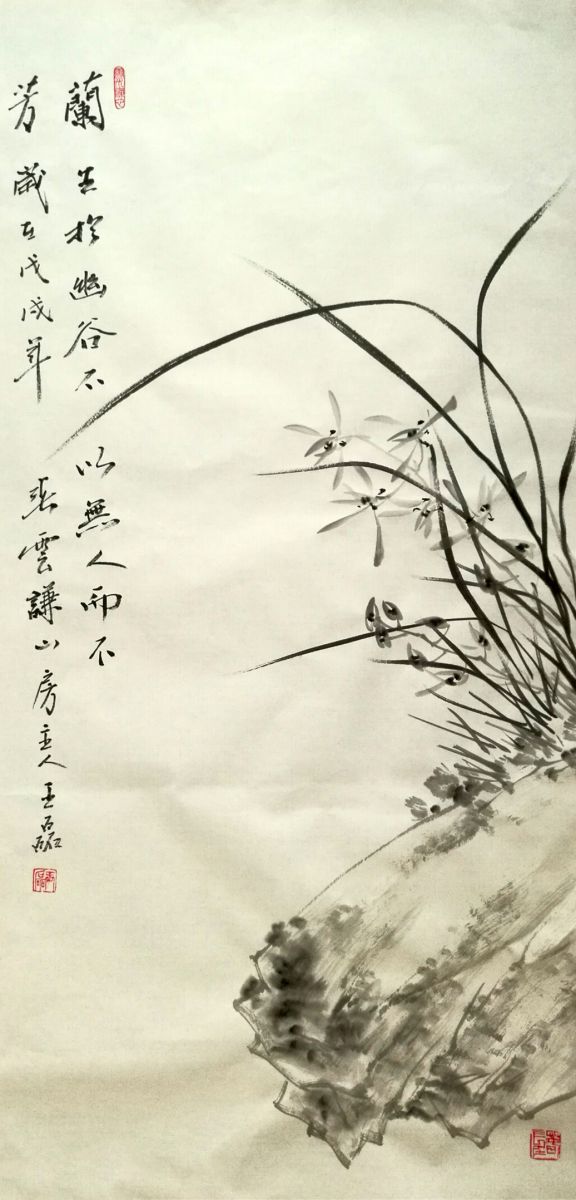 蘭生於幽谷不以無人而不
芳歲在戊戌年雲謙山房主人王磊